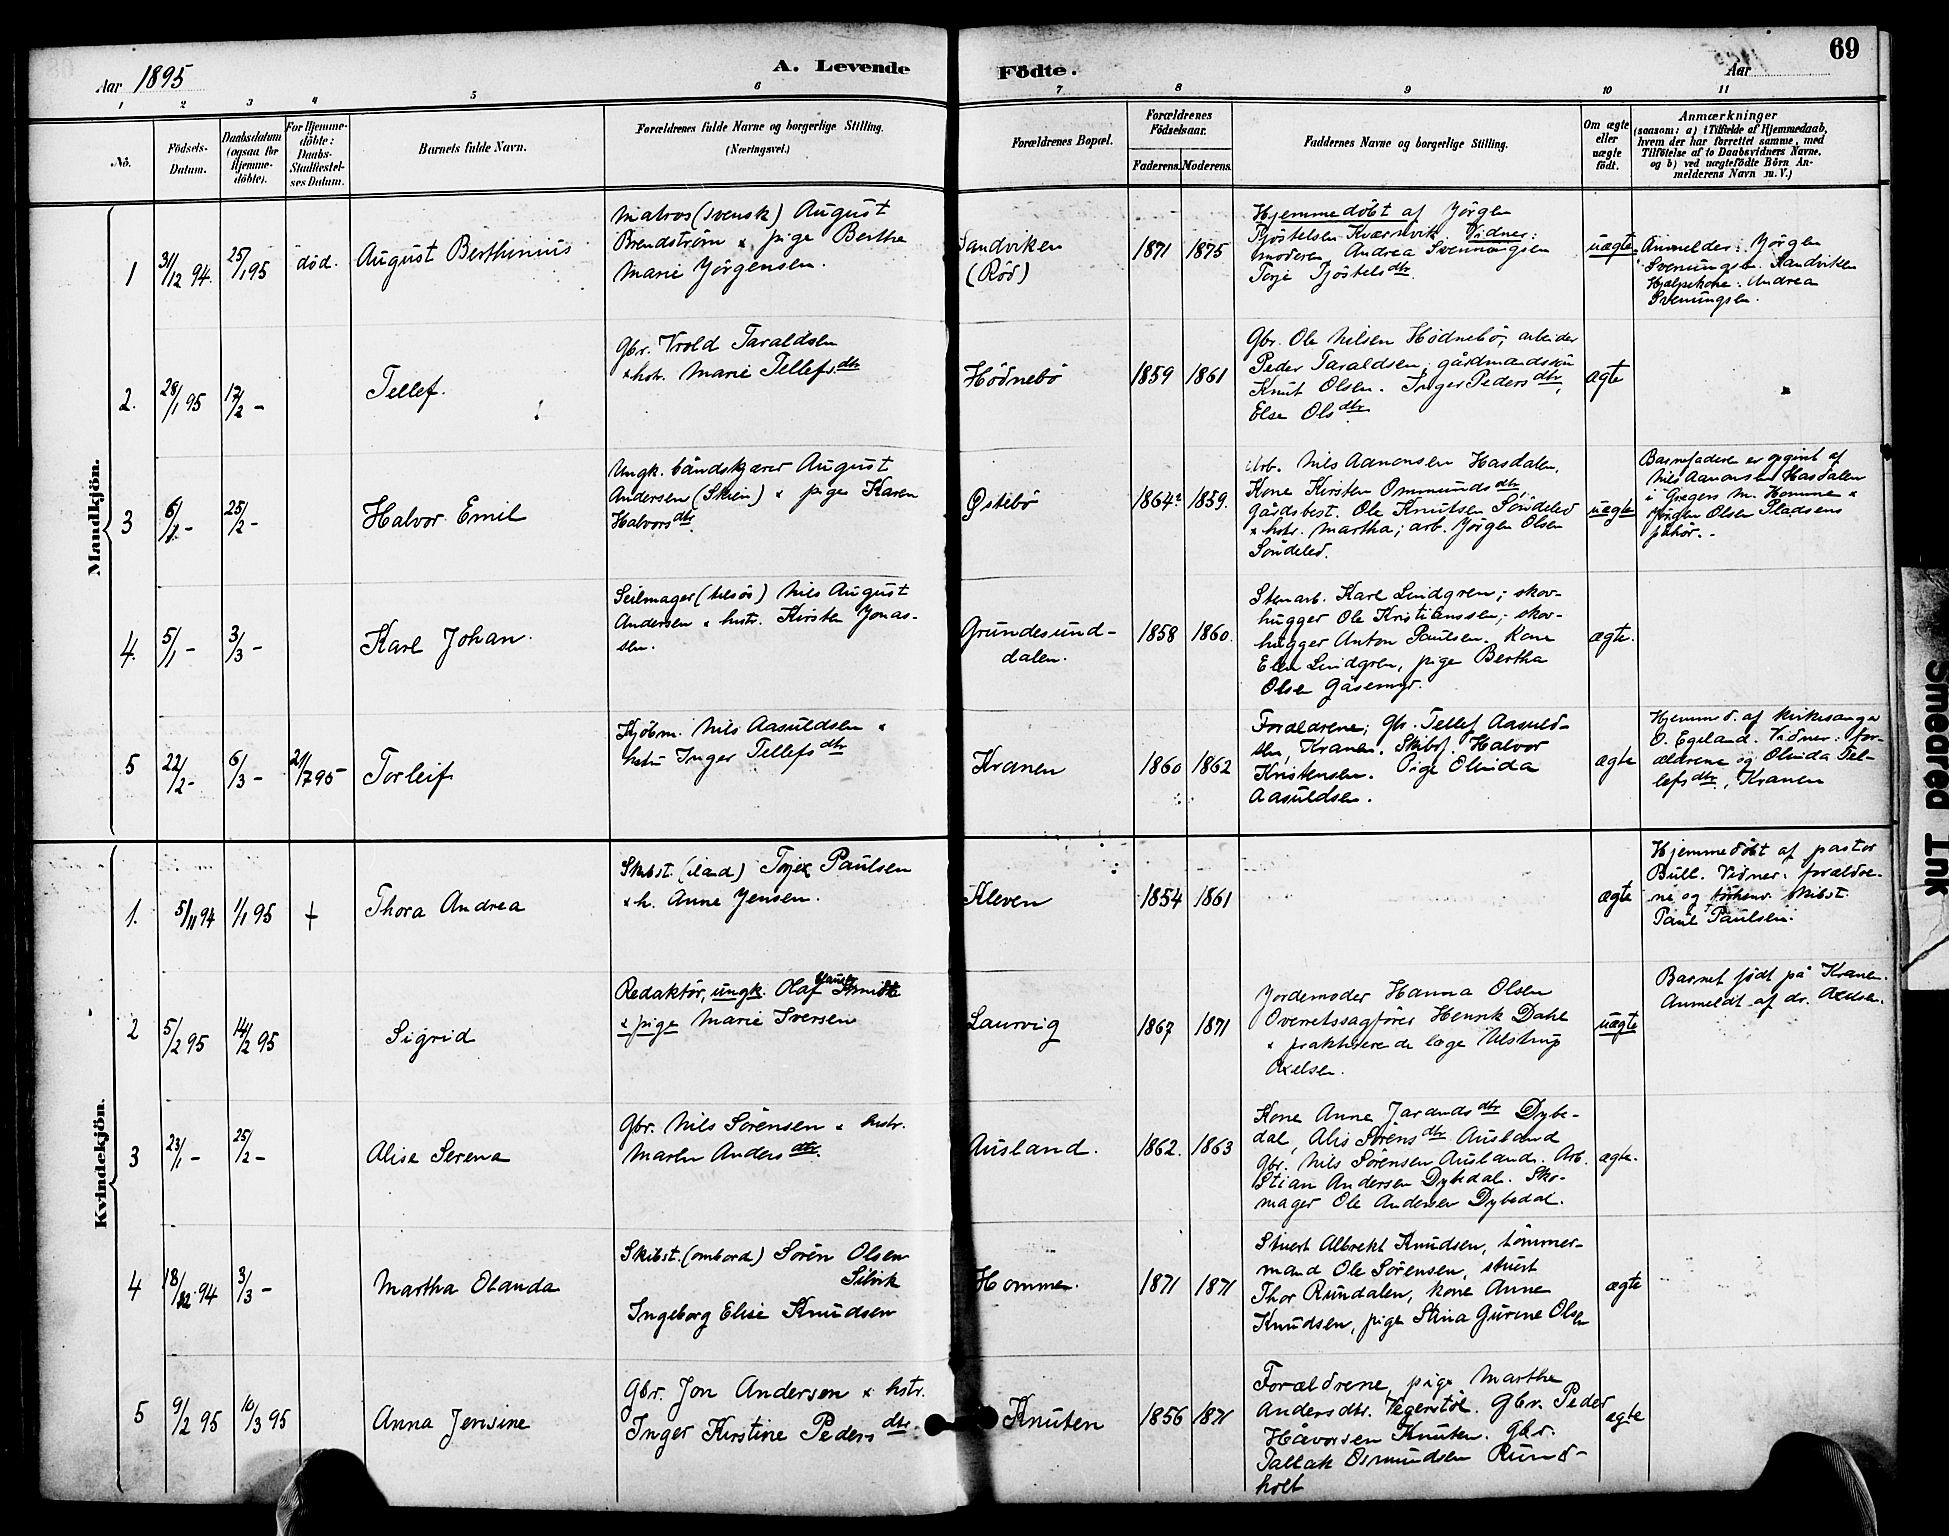 Aar 1895
A. Levende Födte.
Aar
69
1 2 3 4 5 6 7 8 9 10 11
No.
Födsels-Datum.
Daabsdatum (ogsaa for Hjemmedöbte).
For Hjemmedöbte: Daabs-Stadfæstelses Datum.
Barnets fulde Navn.
Forældrenes fulde Navne og borgerlige Stilling. (Næringsvei.)
Forældrenes Bopæl.
Forældrenes Födselsaar.
Faderens. Moderens.
Faddernes Navne og borgerlige Stilling.
Om ægte eller uægte födt.
Anmærkninger
(saasom: a) i Tilfælde af Hjemmedaab,
hvem der har forrettet samme, med
Tilföielse af to Daabsvidners Navne,
og b) ved uægtefödte Börn Anmelderens Navn m. V.)
Mandkjön.
1
31/12 94.
25/1 95
död.
August Berthinius
Matros (svensk) August
Brendström & pige Berthe
Marie Jörgensen.
Sandviken
(Röd)
1871
1875
Hjemmedöbt af Jörgen
Tjöstelsen Kværnvik. Vidner:
moderen, Andrea Svenningsen
Terje Tjöstelsdtr
uægte
Anmelder: Jörgen
Svenningsen Sandviken
Hjælpekone: Andrea
Svenningsen.
2.
28/1 95
17/2 -
Tellef.
Gbr. Vrold Taraldsen
& hstr. Marie Tellefsdtr
Hödnebö
1859
1861
Gbr. Ole Nilsen Hödnebö, arbeider
Peder Taraldsen, gårdmandssön
Knut Olsen. Inger Pedersdtr,
Else Olsdtr
ægte
3
6/2 -
25/2 -
Halvor Emil
Ungk. båndskjærer August
Andersen (Skien) & pige Karen
Halvorsdtr
Östebö
1864?
1859.
Arb. Nils Aanonsen Hasdalen,
Kone Kirsten Ommundsdtr,
Gårdsbest. Ole Knutsen Söndeled
& hstr. Martha; arb. Jörgen Olsen
Söndeled.
uægte
Barnefaderen er opgivet af
Nils Aanonsen Hasdalen
i Gregers M. Homme &
Jörgen Olsen Pladsens
påhör.
4.
5/1 -
3/3 -
Karl Johan
Seilmager (tilsös) Nils August
Andersen & hustr. Kirsten Jonas-
sen.
Grundesund-
dalen.
1858
1860.
Stenarb. Karl Lindgren; skov-
hugger Ole Kristianssen; skov-
hugger Anton Paulsen. Kone
Elen Lindgren, pige Bertha
Olse Gåsemyr.
ægte.
5
22/2 -
6/3 -
21/7 95
Torleif
Kjöbm. Nils Aasuldsen &
hstr Inger Tellefsdtr
Kranen
1860
1862
Forældrene; gbr. Tellef Aasuld-
sen, Kranen. Skibsf. Halvor
Kristensen. Pige Olvida
Aasuldsen.
ægte
Hjemmed. af kirkesanger
O. Egeland. Vidner: for-
ældrene og Olvida Tel-
lefsdtr, Kranen
Kvindekjön.
1.
5/11 94
1/1 95
+
Thora Andrea
Skibst. (iland) Terjer Paulsen
& h. Anne Jensen.
Kleven
1854
1861
ægte
Hjemmedöbt af pastor
Bull. Vidner: forældre-
ne og skibst.
Paul Paulsen.
2
5/2 95
14/2 95
Sigrid
Redaktör, ungk. Olaf Smidt
& pige Marie Iversen
Laurvig
1867
1871
Jordemoder Hanna Olsen
Overretssagförer Henrik Dahl
& praktiserende læge Ulstrup
Axelsen.
uægte
Barnet födt på Kranen.
Anmeldt af dr. Axelsen.
3
23/1 -
25/2 -
Alise Serena
Gbr. Nils Sörensen & hustr.
Maren Andersdtr.
Ausland.
1862.
1863
Kone Anne Jarandsdtr Dybe-
dal, Alis Sörensdtr Ausland
Gbr. Nils Sörensen Ausland. Arb.
Stian Andersen Dybedal. Sko-
mager Ole Andersen Dybedal.
ægte.
4
18/12 94
3/3 -
Martha Olanda
Skibst. (ombord) Sören Olsen
Silvik
Ingeborg Elise Knudsen
Hommen.
1871
1871
Stuert Albrekt Knudsen, tömmer-
mand Ole Sörensen, stuert
Thor Rundalen, kone Anne
Knudsen, pige Stina Gurine Olsen
ægte
5
9/2 95
10/3 95
Anna Jensine
Gbr. Jon Andersen & hstr.
Inger Kirstine Pedersdtr.
Knuten
1856
1871
Forældrene, pige Marthe
Andersdtr. Vegerstöl. Gbr. Peder
Håvorsen Knuten. Gbr.
Tallak Osmundsen Rund-
holt
ægte
Smeared Ink